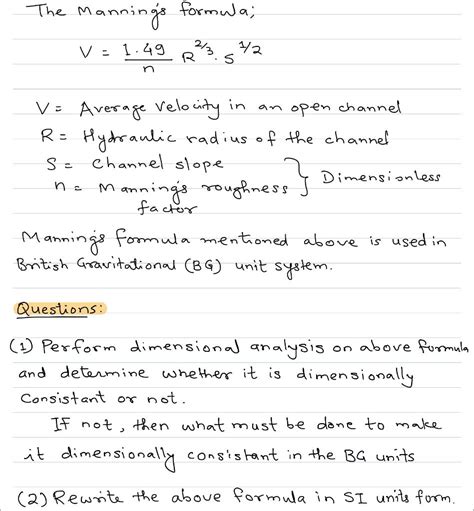 The Manning's formula;
V = 1.49/n R^2/3 . S^1/2
V = Average velocity in an open channel
R = Hydraulic radius of the channel
S = Channel slope
n = Manning's roughness factor } Dimensionless
Manning's formula mentioned above is used in
British Gravitational (BG) unit system.
Questions:
(1) Perform dimensional analysis on above formula
and determine whether it is dimensionally
consistant or not.
If not, then what must be done to make
it dimensionally consistant in the BG units
(2) Rewrite the above formula in SI units form.